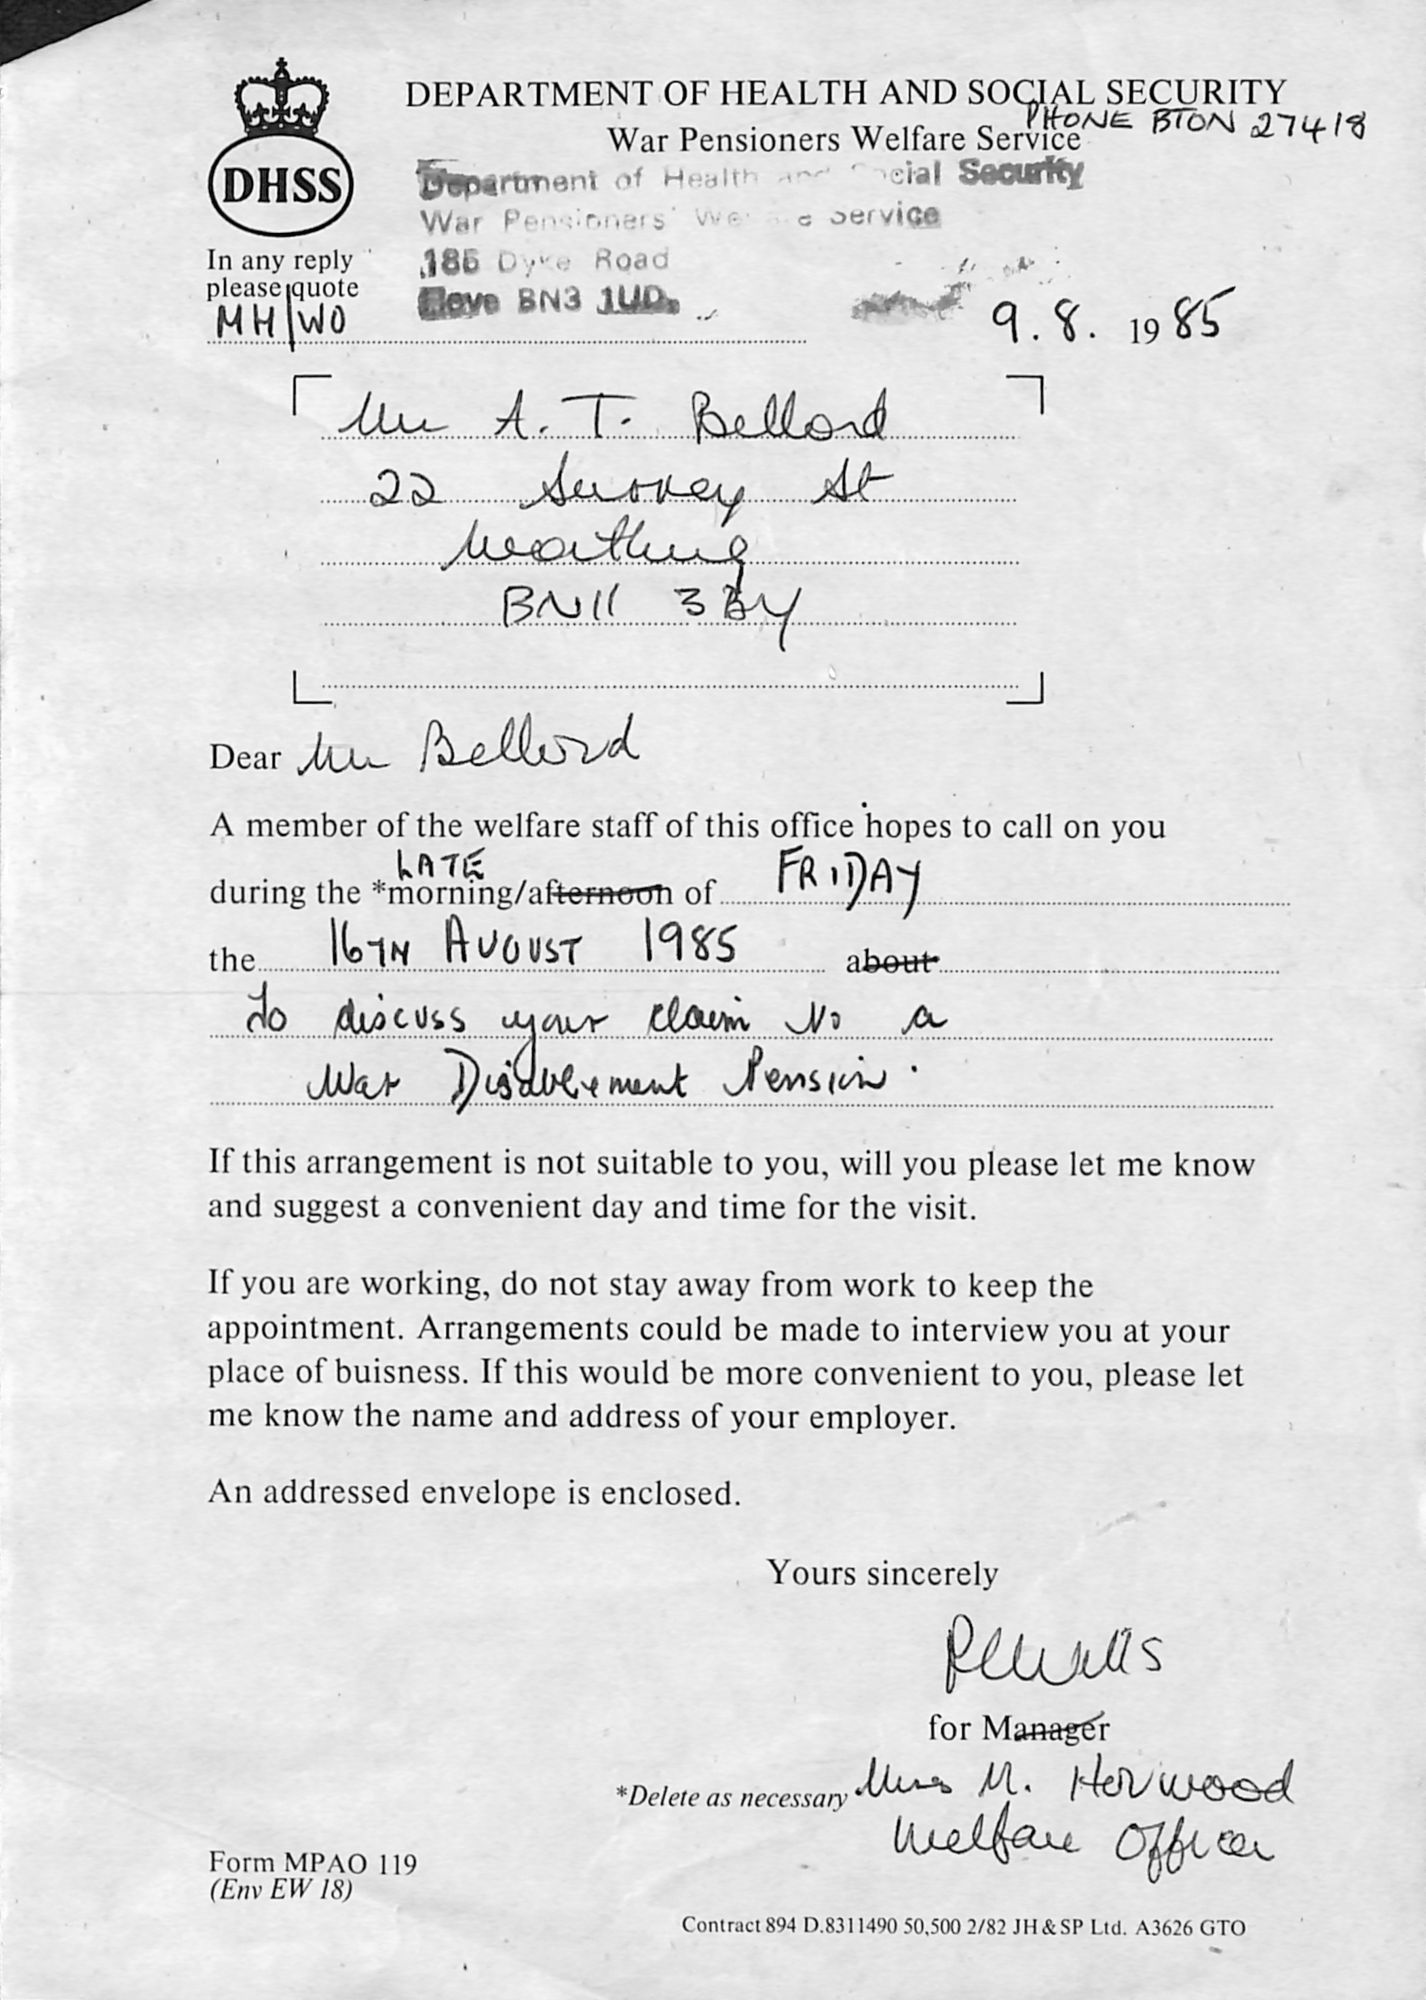 DEPARTMENT OF HEALTH AND SOCIAL SECURITY
PHONE BTON 27418
War Pensioners Welfare Service
DHSS
Department of Health and Social Security
War Pensioners' Welfare Service
185 Dyke Road
Hove BN3 1UD.
In any reply
please quote
MH/WO
9. 8. 1985
Mr A. T. Bellord
22 Surrey St
Worthing
BN11 3BY
Dear Mr Bellord
A member of the welfare staff of this office hopes to call on you
LATE
during the *morning/afternoon of FRIDAY
the 16TH AUGUST 1985 about
to discuss your claim to a
War Disablement Pension.
If this arrangement is not suitable to you, will you please let me know
and suggest a convenient day and time for the visit.
If you are working, do not stay away from work to keep the
appointment. Arrangements could be made to interview you at your
place of buisness. If this would be more convenient to you, please let
me know the name and address of your employer.
An addressed envelope is enclosed.
Yours sincerely
for Manager
*Delete as necessary
Miss M. Horwood
Welfare Officer
Form MPAO 119
(Env EW 18)
Contract 894 D.8311490 50,500 2/82 JH & SP Ltd. A3626 GTO